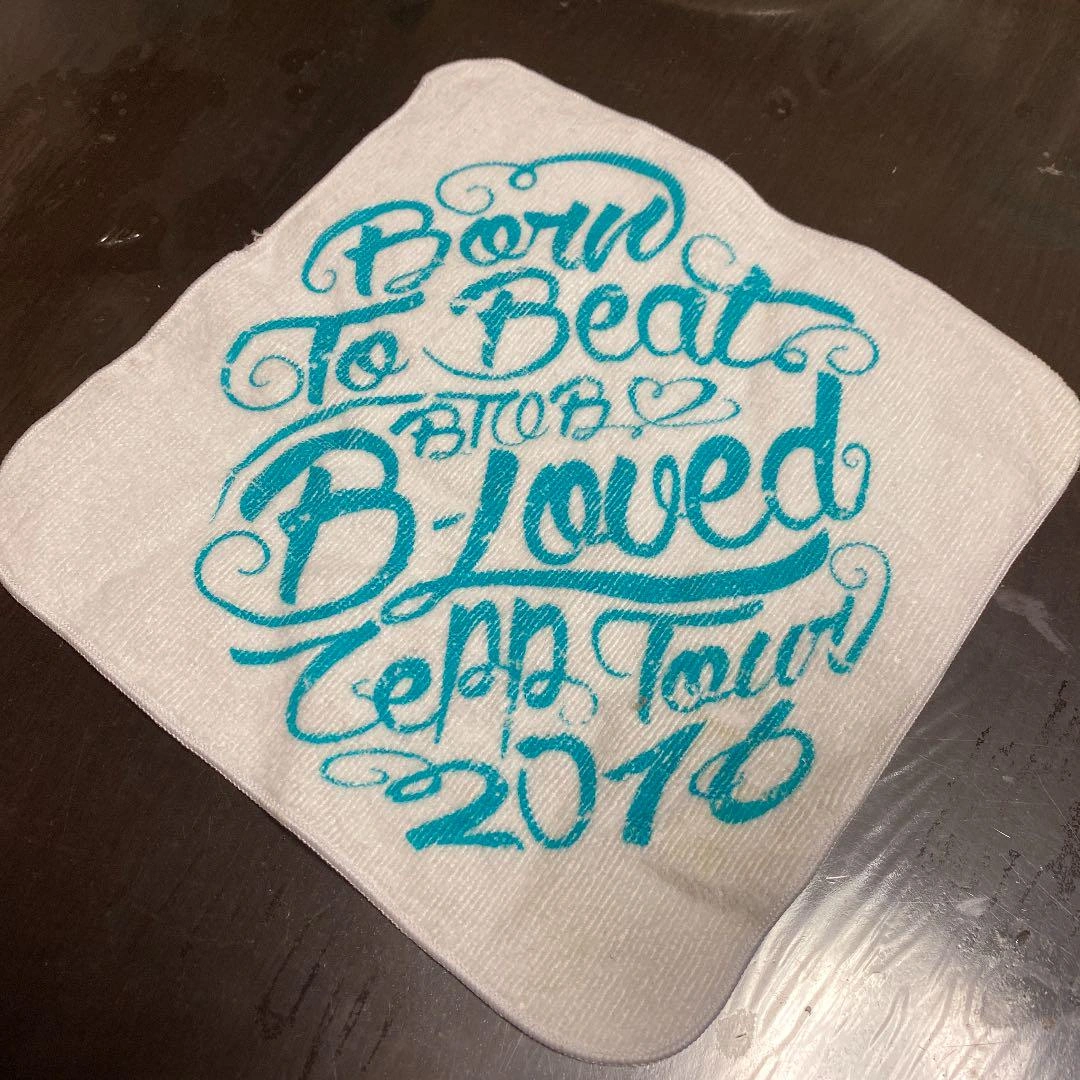 Born
To Beat
BTOB
B-Loved
Zepp Tour
2016